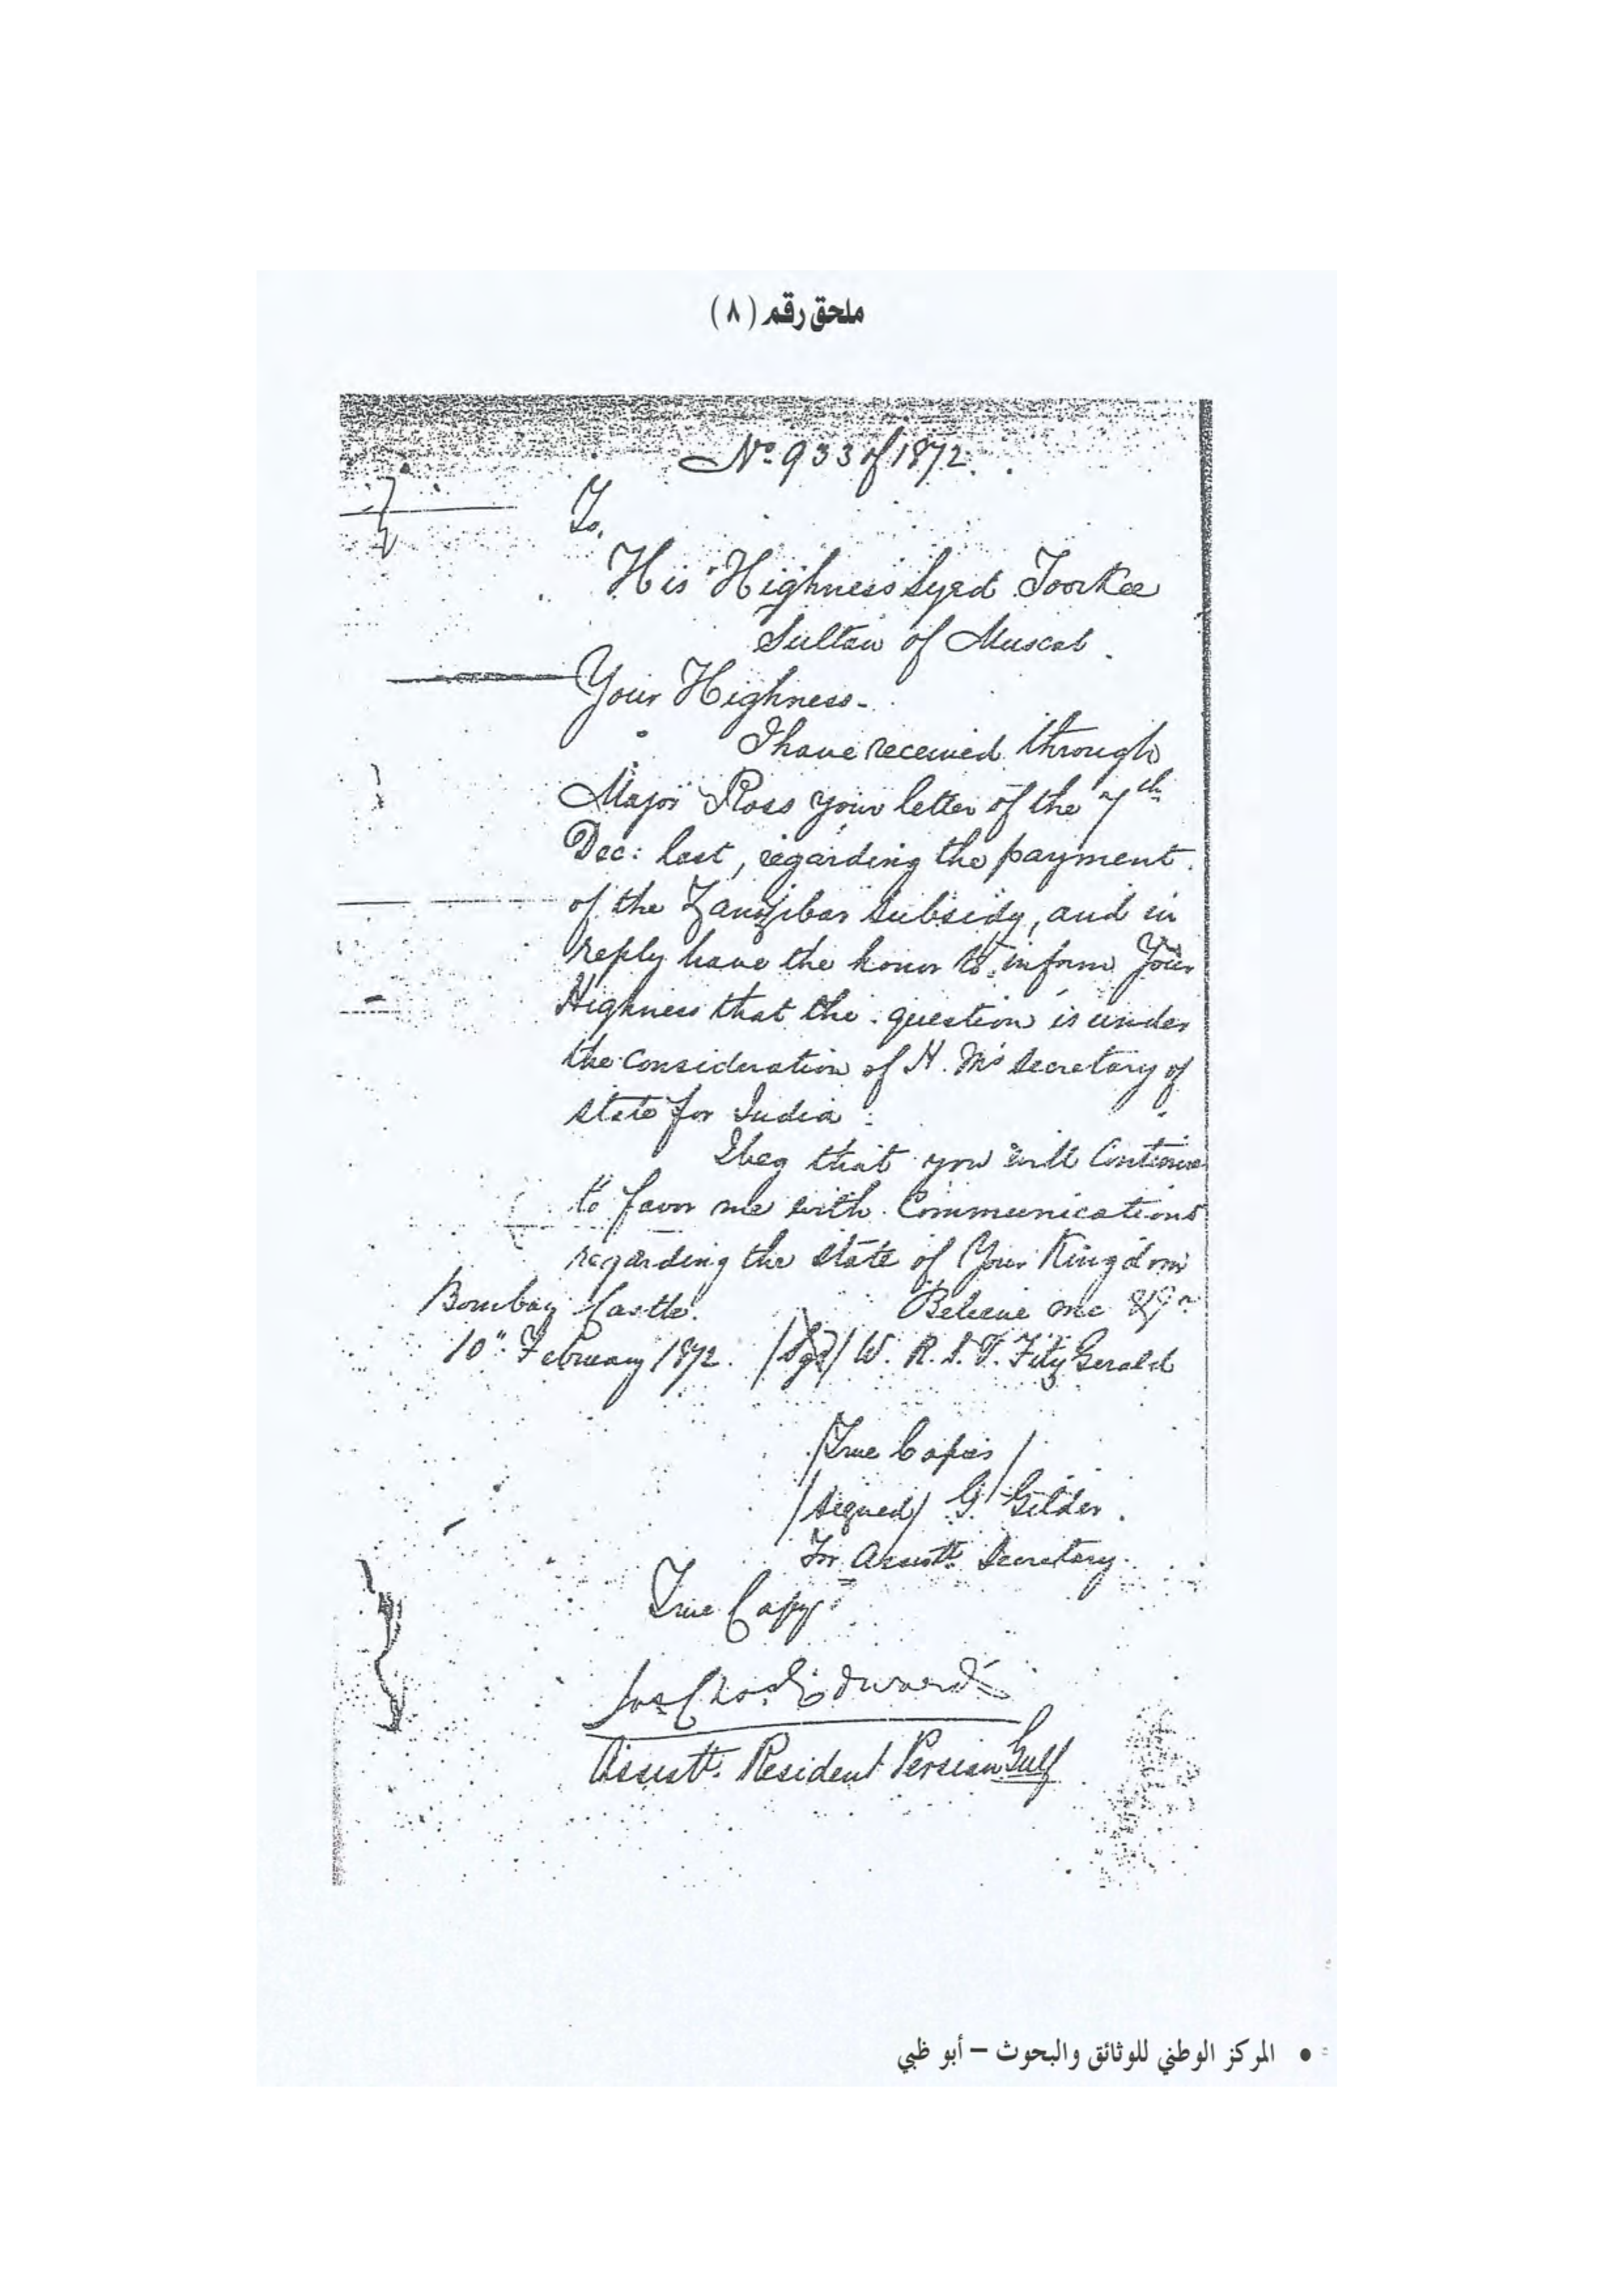 ملحق رقم ( ٨ )
No. 933 of 1872.
To,
His Highness Syed Toorkee
Sultan of Muscat.
Your Highness-
I have received through
Major Ross your letter of the 7th
Dec: last, regarding the payment
of the Zanzibar subsidy, and in
reply have the honor to inform Your
Highness that the question is under
the consideration of H. M's Secretary of
State for India.
I beg that you will Continue
to favor me with Communications
regarding the state of Your Kingdom
Believe me &ca
Bombay Castle.
10" February 1872. /Sgd/ W. R. S. V. FitzGerald
/True Copies/
/signed/ G. Gilder.
For Assistt. Secretary.
True Copy
Edwards
Assistt. Resident Persian Gulf
• المركز الوطني للوثائق والبحوث – أبو ظبي